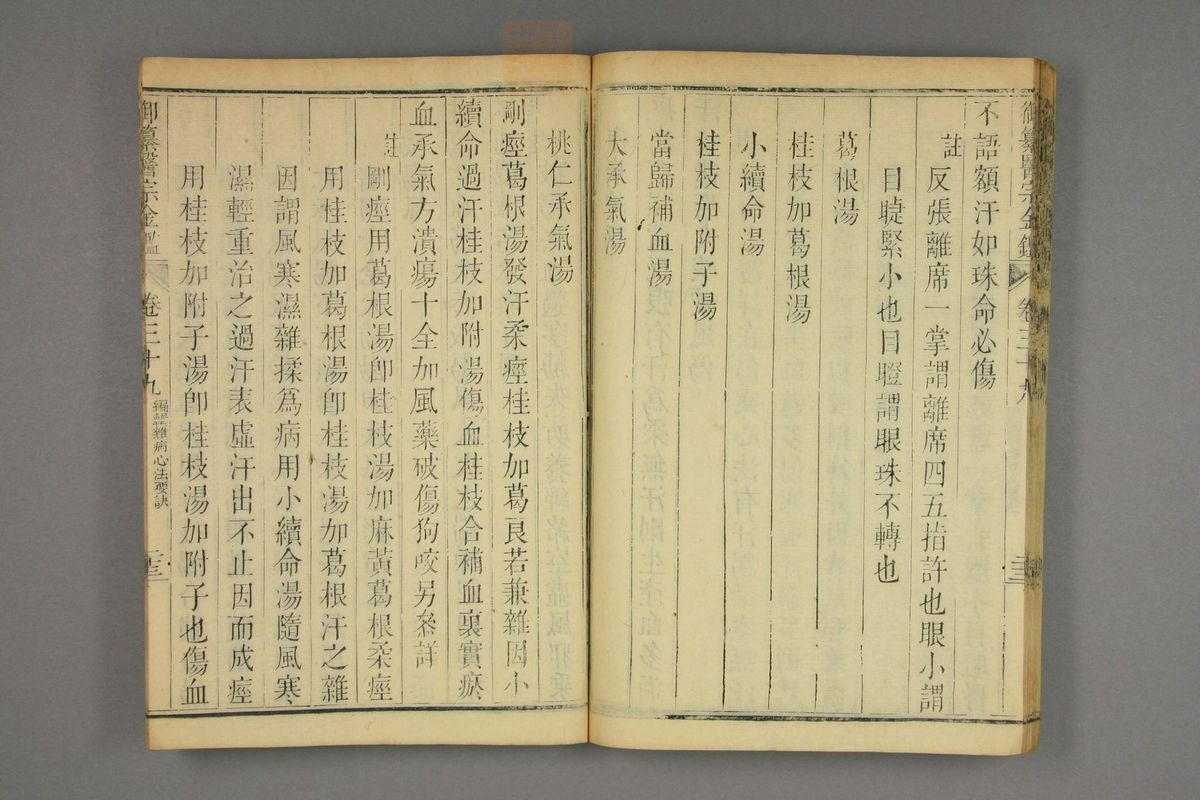 御纂醫宗金鑑 卷三十九
不語額汗如珠命必傷
註 反張離席一掌謂離席四五指許也眼小謂
目睫緊小也目瞪謂眼珠不轉也
葛根湯
桂枝加葛根湯
小續命湯
桂枝加附子湯
當歸補血湯
大承氣湯
桃仁承氣湯
剛痙葛根湯發汗柔痙桂枝加葛良若兼雜因小
續命過汗桂枝加附湯傷血桂枝合補血裏實瘀
血承氣方潰瘍十全加風藥破傷狗咬另叅詳
註 剛痙用葛根湯卽桂枝湯加麻黃葛根柔痙
用桂枝加葛根湯卽桂枝湯加葛根汗之雜
因謂風寒濕雜揉爲病用小續命湯隨風寒
濕輕重治之過汗表虛汗出不止因而成痙
用桂枝加附子湯卽桂枝湯加附子也傷血
御纂醫宗金鑑 卷三十九 編輯雜病心法要訣 二十三